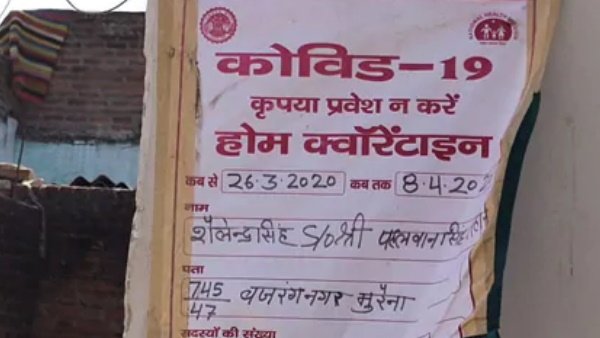 कोविड-19
कृपया प्रवेश न करें
होम क्वॉरेंटाइन
कब से 26.3.2020 कब तक 8.4.202
नाम
शैलेन्द्रसिंह S/o श्री पहलवानसिंह
पता
745/47 बजरंगनगर मुरैना
सदस्यों की संख्या